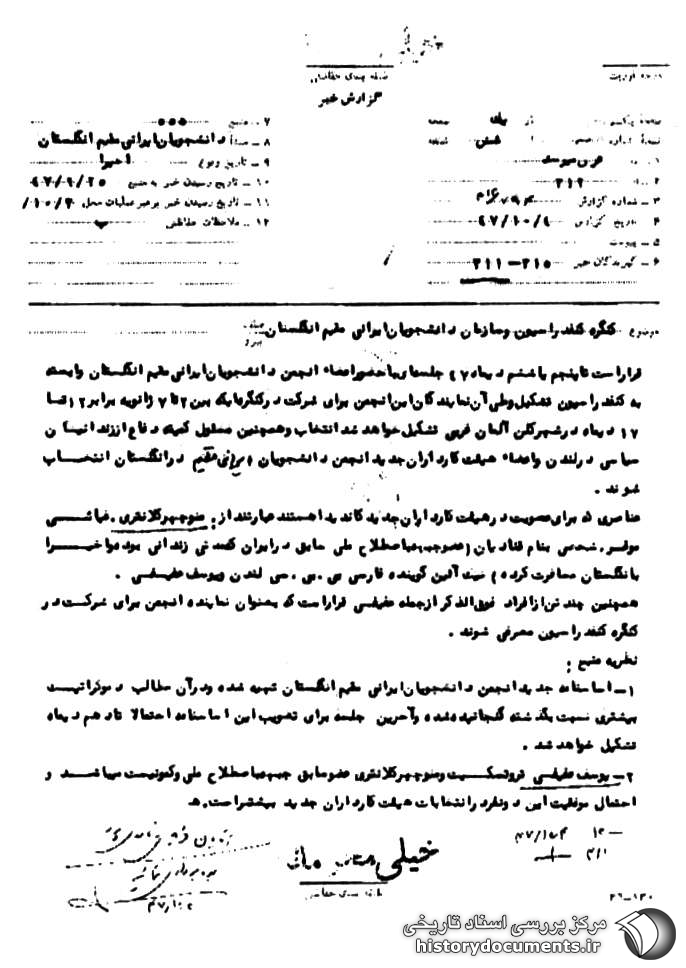 طبقه بندی حفاظتی
گزارش خبر
۷ – منبع ۰۰۰
۸ – مبدأ دانشجویان ایرانی مقیم انگلستان
۹ – تاریخ وقوع اخیرا
۱۰ – تاریخ رسیدن خبر به منبع
۱۱ – تاریخ رسیدن خبر برهبر عملیات محل
۱۲ – ملاحظات حفاظتی
۳۱۲
۳ – شماره گزارش
۴ تاریخ گزارش ۴۷/۱۰/۴
۵ – پیوست
۶ – گیرندگان خبر ۳۱۱–۳۱۵
موضوع کنگره کنفدراسیون وسازمان دانشجویان ایرانی مقیم انگلستان
قراراست تاپنجم یاششم دیماه ۴۷ جلسه‌ای باحضوراعضاء انجمن دانشجویان ایرانی مقیم انگلستان وابسته
به کنفدراسیون تشکیل وطی آن نمایندگان این انجمن برای شرکت درکنگره‌ایکه بین ۲تا ۷ ژانویه برابر ۱۲تا
۱۷ دیماه درشهرکلن آلمان غربی تشکیل خواهد شد انتخاب وهمچنین مسئول کمیته دفاع اززندانیان
سیاسی درلندن واعضاء هیئت کارداران جدید انجمن دانشجویان ایرانی مقیم درانگلستان انتخاب
شوند .
عناصری که برای عضویت درهیئت کارداران جدید کاندیدا هستند عبارتند از : منوچهرکلانتری . غیاثی
موقر . شخصی بنام قنادیان (عضوجبهه باصطلاح ملی سابق درایران که مدتی زندانی بوده واخیرا
بانگلستان مسافرت کرده) مهدآئین گوینده فارسی بی . بی . سی لندن ویوسف عفیفی .
همچنین چند تن ازافراد فوق الذکر ازجمله عفیفی قراراست که بعنوان نماینده انجمن برای شرکت در
کنگره کنفدراسیون معرفی شوند .
نظریه منبع :
۱– اساسنامه جدید انجمن دانشجویان ایرانی مقیم انگلستان تهیه شده ودرآن مطالب دموکراتیک
بیشتری نسبت بگذشته گنجانیده شده وآخرین جلسه برای تصویب این اساسنامه احتمالا تادهم دیماه
تشکیل خواهد شد .
۲– یوسف عفیفی تروتسکیست ومنوچهرکلانتری عضوسابق جبهه باصطلاح ملی وکمونیست میباشد و
احتمال موفقیت این دونفردرانتخابات هیئت کارداران جدید بیشتراست . ه
خیلی محرمانه
طبقه بندی حفاظتی
مرکز بررسی اسناد تاریخی
historydocuments.ir